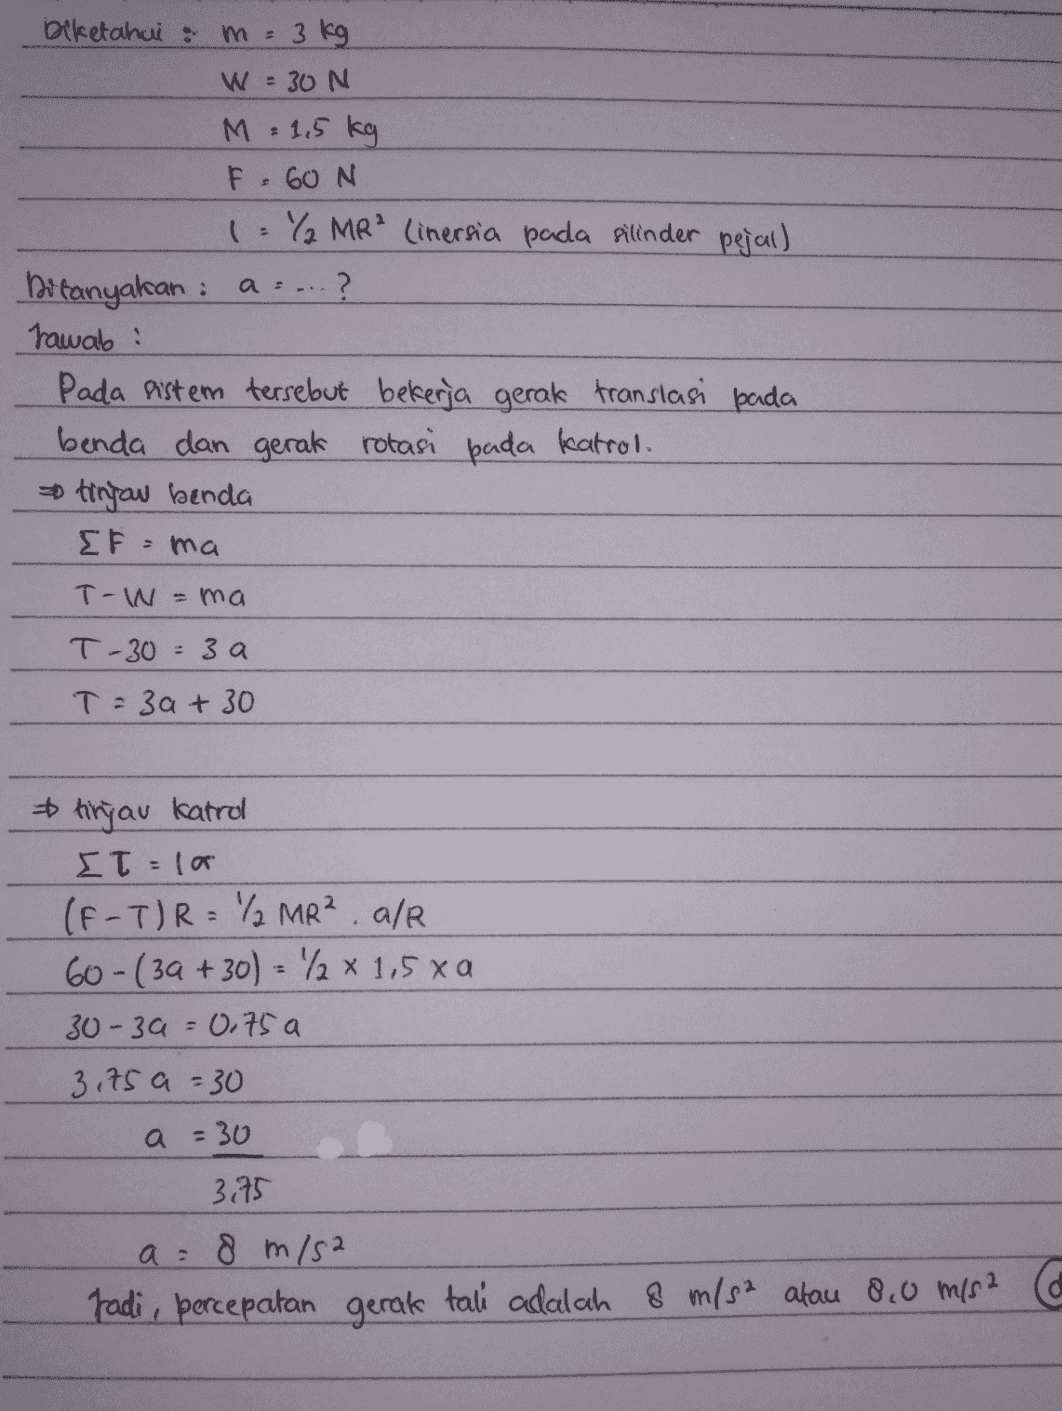 Diketahui : m = 3 kg
W = 30 N
M = 1,5 kg
F = 60 N
I = 1/2 MR² (inersia pada silinder pejal)
Ditanyakan : a = ... ?
Jawab :
Pada sistem tersebut bekerja gerak translasi pada
benda dan gerak rotasi pada katrol.
⇒ tinjau benda
ΣF = ma
T - W = ma
T - 30 = 3 a
T = 3a + 30
⇒ tinjau katrol
Στ = Iα
(F - T) R = 1/2 MR² . a/R
60 - (3a + 30) = 1/2 x 1,5 x a
30 - 3a = 0,75 a
3,75 a = 30
a = 30
3,75
a = 8 m/s²
Jadi, percepatan gerak tali adalah 8 m/s² atau 8,0 m/s² (d